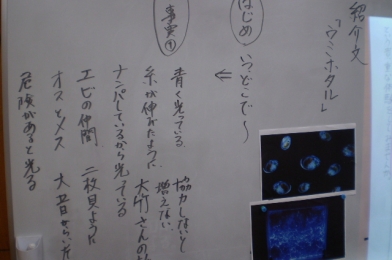 紹介文
「ウミホタル」
はじめ
いつどこで〜
事実①
青く光っている
協力しないと
糸が伸びたように
増えない
ナンパしているから光っている
大竹さんの
エビの仲間
二枚貝ように
オスとメス
大昔からいた
危険があると光る